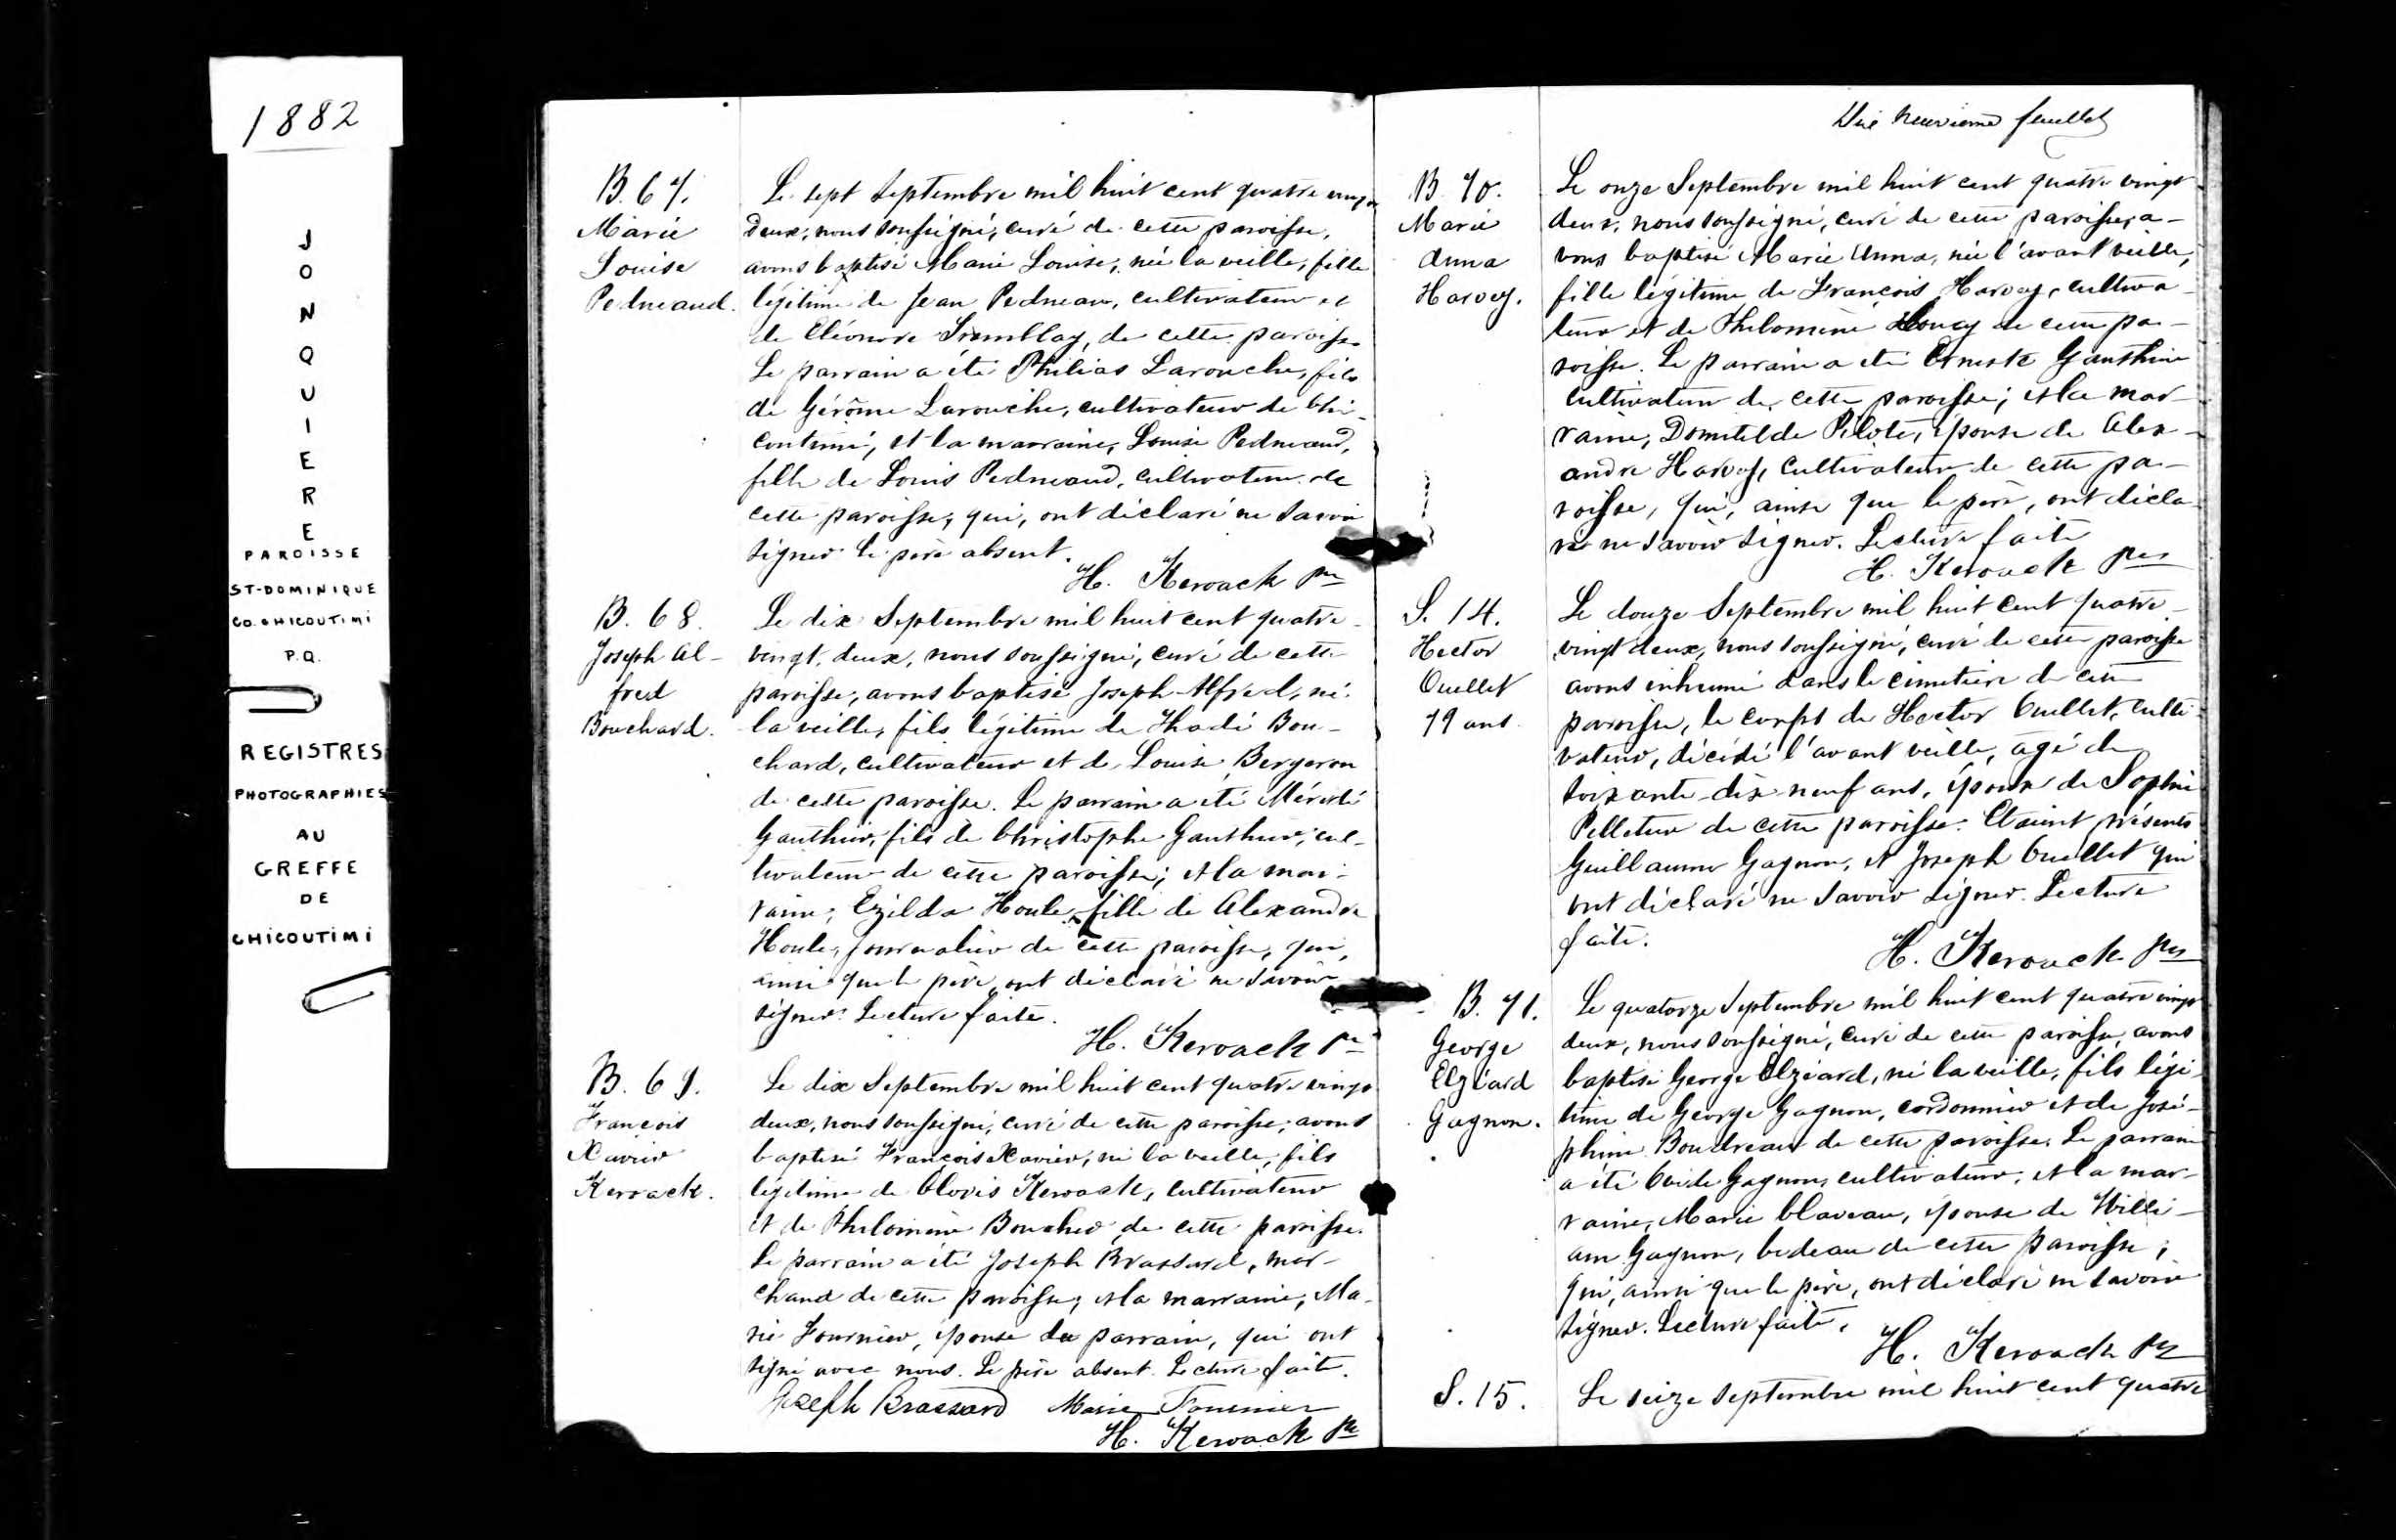 1882
JONQUIERE
PAROISSE
ST-DOMINIQUE
CO. CHICOUTIMI
P.Q.
REGISTRES
PHOTOGRAPHIES
AU
GREFFE
DE
CHICOUTIMI
B. 67.
Marie
Louise
Pedneaud.
Le sept Septembre mil huit cent quatre vingt
deux, nous soussigné, curé de cette paroisse,
avons baptisé Marie Louise, née la veille, fille
légitime de Jean Pedneau, cultivateur et
de Eléonore Tremblay, de cette paroisse
Le parrain a été Philias Larouche, fils
de Gérôme Larouche, cultivateur de Chi-
coutimi, et la marraine, Louise Pedneaud,
fille de Louis Pedneaud, cultivateur de
cette paroisse, qui, ont déclaré ne savoir
signer le père absent.
H. Kerouack ptre
B. 68.
Joseph Al-
fred
Bouchard.
Le dix Septembre mil huit cent quatre-
vingt, deux, nous soussigné, curé de cette
paroisse, avons baptisé Joseph-Alfred, né
la veille, fils légitime de Thadé Bou-
chard, cultivateur et de Louise Bergeron
de cette paroisse. Le parrain a été
Gauthier, fils de Christophe Gauthier, cul-
tivateur de cette paroisse; et la mar-
raine, Ezilda Houle, fille de Alexandre
Houle, journalier de cette paroisse, qui,
ainsi que le père, ont déclaré ne savoir
signer. Lecture faite.
H. Kerouack ptre
B. 69.
François
Xavier
Kerouack.
Le dix Septembre mil huit cent quatre vingt
deux, nous soussigné, curé de cette paroisse, avons
baptisé François Xavier, né la veille, fils
légitime de Clovis Kerouack, cultivateur
et de Philomène Boucher de cette paroisse.
Le parrain a été Joseph Brassard, mar-
chand de cette paroisse, et la marraine, Ma-
rie Fournier, épouse du parrain, qui ont
signé avec nous. Le père absent. Lecture faite.
Joseph Brassard Marie Fournier
H. Kerouack ptre
Dix neuvième feuillet
B. 70.
Marie
Anna
Harvey.
Le onze Septembre mil huit cent quatre vingt
deux, nous soussigné, curé de cette paroisse, a-
vons baptisé Marie Anna, née l'avant veille,
fille légitime de François Harvey, cultiva-
teur et de Philomène de cette pa-
roisse. Le parrain a été Erneste Gauthier
cultivateur de cette paroisse; et la mar-
raine, Domitilde Pilote, épouse de Alex-
andre Harvey, cultivateur de cette pa-
roisse, qui, ainsi que le père, ont décla-
ré ne savoir signer. Lecture faite
H. Kerouack ptre
S. 14.
Hector
Ouellet
79 ans.
Le douze Septembre mil huit cent quatre-
vingt deux, nous soussigné, curé de cette paroisse
avons inhumé dans le cimetière de cette
paroisse, le corps de Hector Ouellet, culti-
vateur, décédé l'avant veille, âgé de
soixante-dix-neuf ans, époux de Sophie
Pelletier de cette paroisse. Etaient présents
Guillaume Gagnon, et Joseph Ouellet qui
ont déclaré ne savoir signer. Lecture
faite.
H. Kerouack ptre
B. 71.
George
Elzéard
Gagnon.
Le quatorze Septembre mil huit cent quatre vingt
deux, nous soussigné, curé de cette paroisse, avons
baptisé George Elzéard, né la veille, fils légi-
time de George Gagnon, cordonnier et de José-
phine Boudreault de cette paroisse. Le parrain
a été Ovide Gagnon, cultivateur, et la mar-
raine, Marie Claveau, épouse de Willi-
am Gagnon, bedeau de cette paroisse,
qui, ainsi que le père, ont déclaré ne savoir
signer. Lecture faite.
H. Kerouack ptre
S. 15.
Le seize Septembre mil huit cent quatre